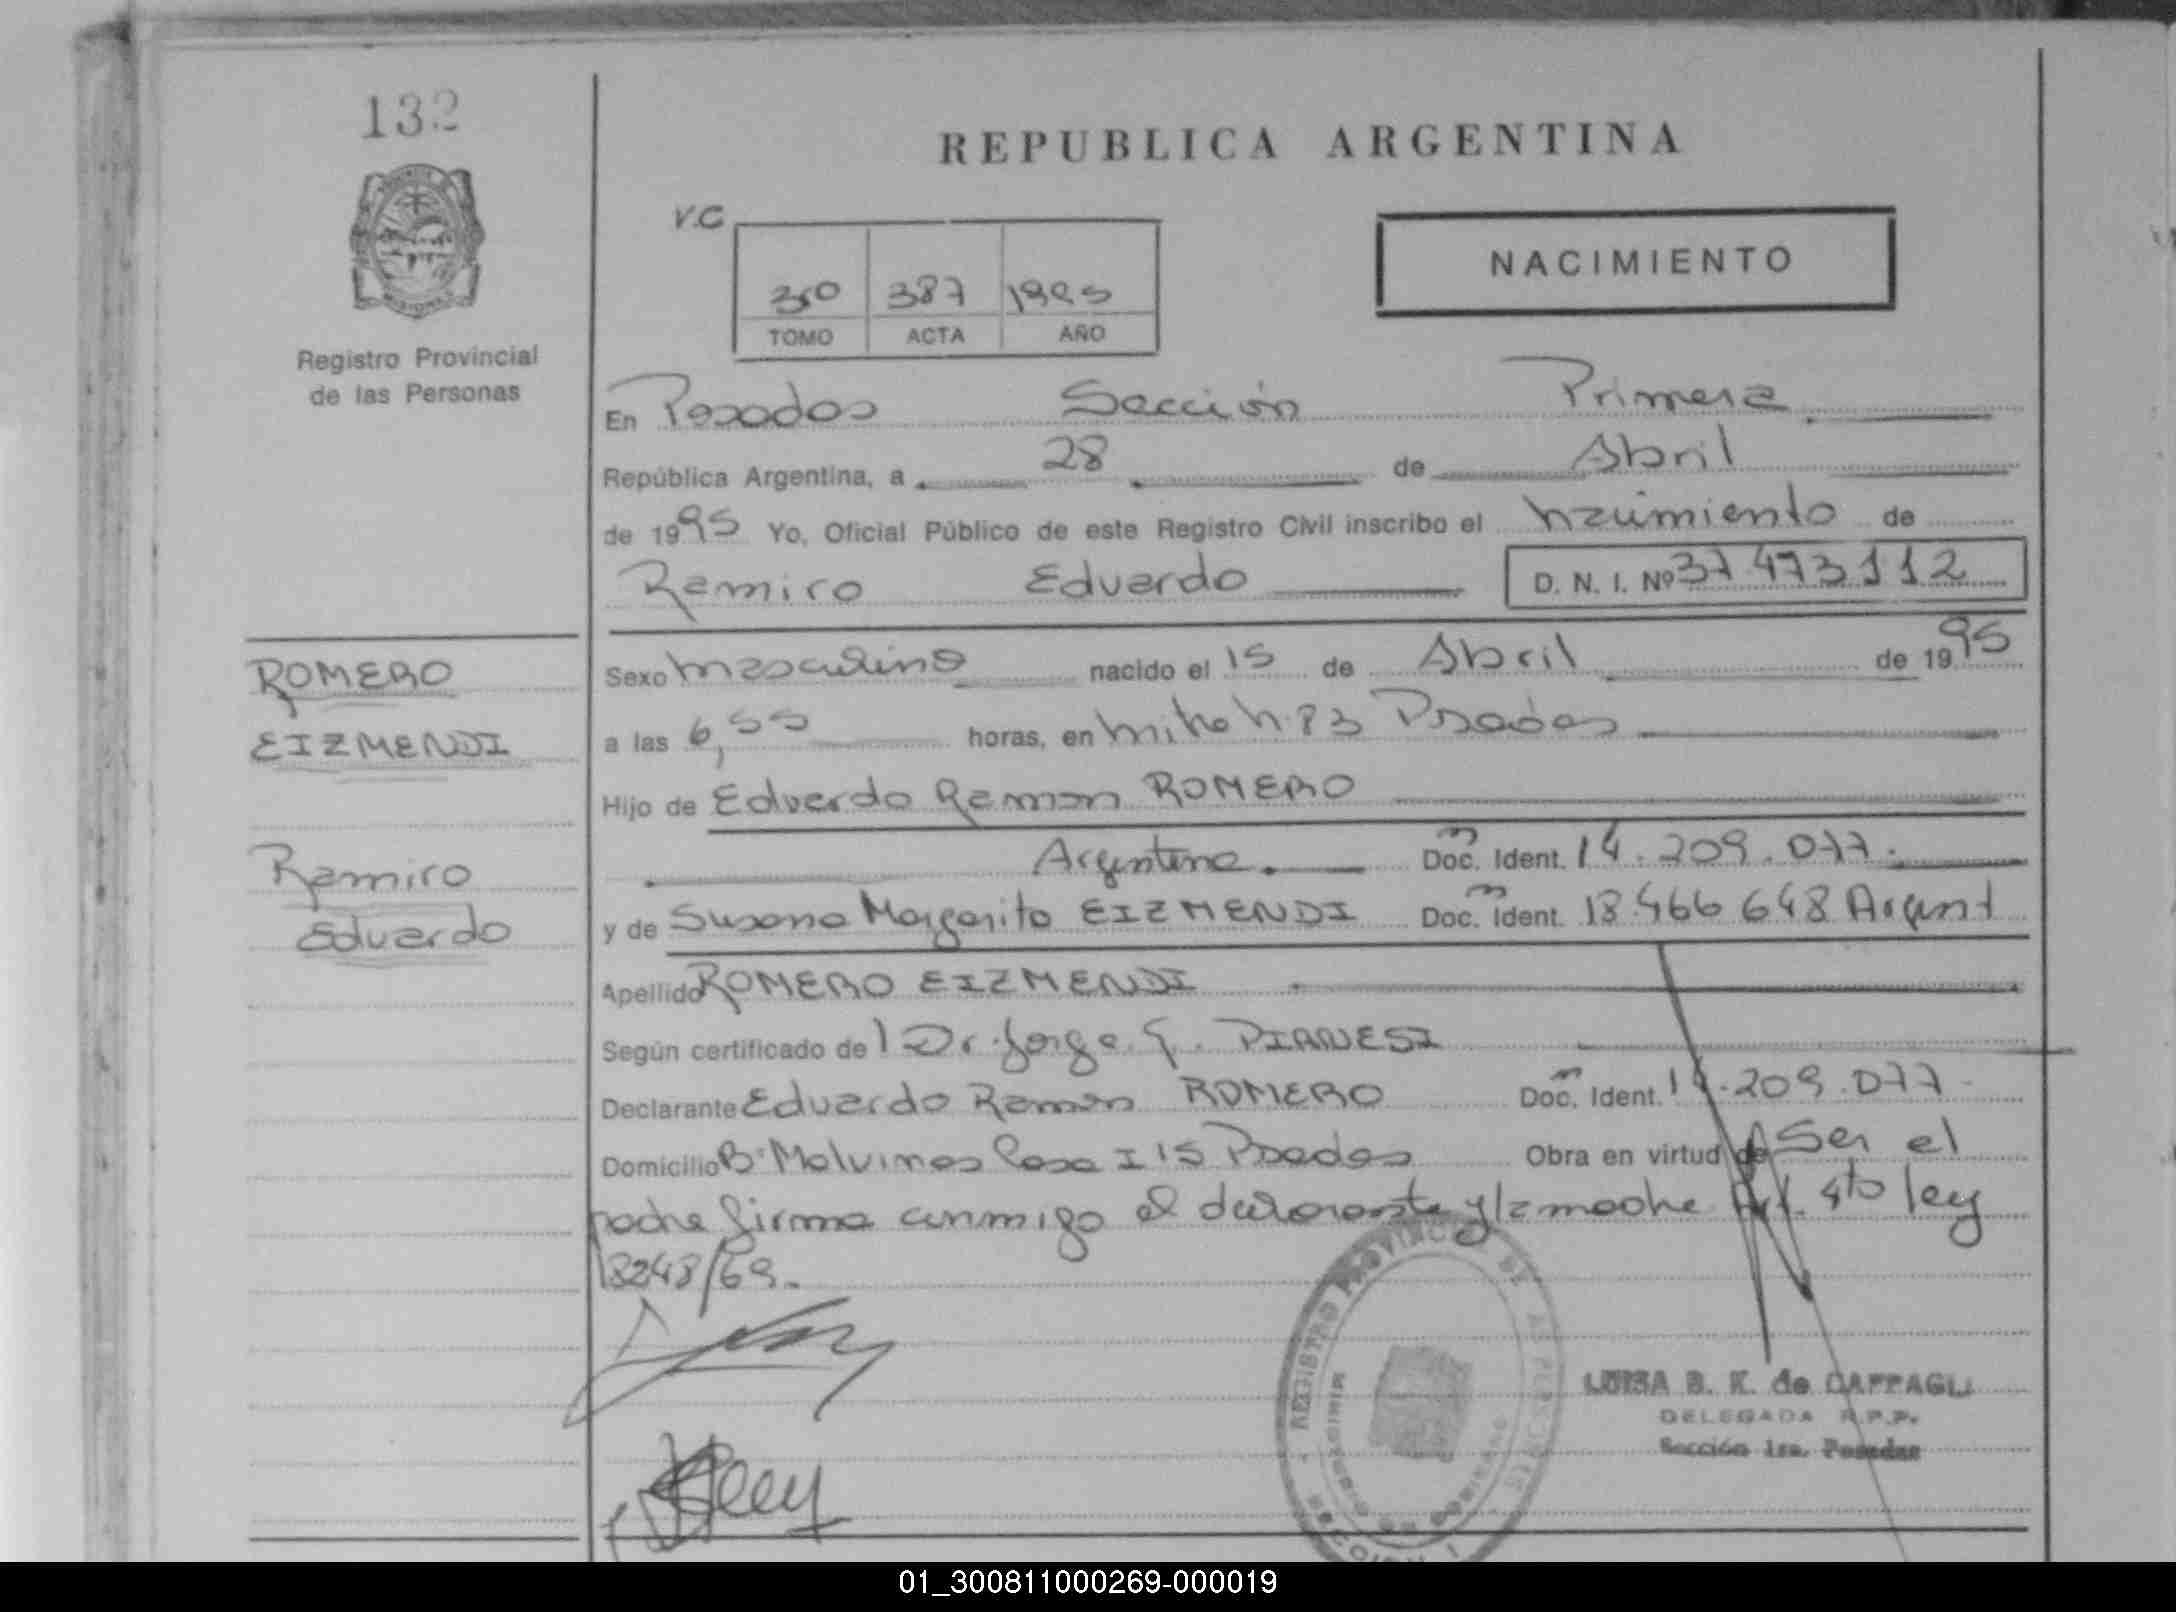 132
REPUBLICA ARGENTINA
V.C
NACIMIENTO
387 1995
TOMO ACTA AÑO
Registro Provincial
de las Personas
En Posadas Sección Primera
República Argentina, a 28 de Abril
de 1995 Yo, Oficial Público de este Registro Civil inscribo el nacimiento de
Ramiro Eduardo D. N. I. Nº 37 473 112
ROMERO
EIZMENDI
Ramiro
Eduardo
Sexo masculino nacido el 15 de Abril de 1995
a las 6,55 horas, en Mitre N. 83 Posadas
Hijo de Eduardo Ramon ROMERO
Argentino. Doc. Ident. 14.209.077.
y de Susana Margarita EIZMENDI Doc. Ident. 18.466 648 Argent
Apellido ROMERO EIZMENDI
Según certificado de l Dr. Jorge G. PIANESI
Declarante Eduardo Ramon ROMERO Doc. Ident. 14.209.077
Domicilio B. Malvinas Casa I 15 Posadas Obra en virtud de Ser el
padre firma conmigo el declarante y la madre Art. 4to ley
18248/69.
REGISTRO PROVINCIAL DE LAS PERSONAS
SECCION 1
MINISTERIO DE GOBIERNO
LUISA B. K. de CAFFAGLI
DELEGADA R.P.P.
Sección 1ra. Posadas
01_300811000269-000019